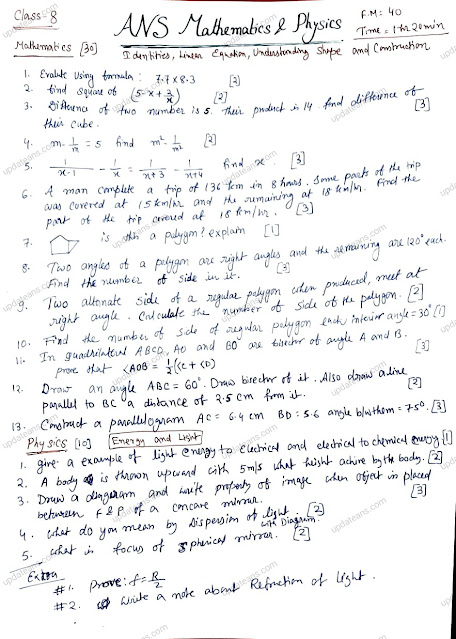 Class-8
ANS Mathematics & Physics
F.M: 40
Time = 1 hr 20min
Mathematics [30]
Identities, Linear Equation, Understanding Shape and Construction
1. Evalute Using formula: 7.7 x 8.3 [2]
2. find square of (5x + 3/x) [2]
3. Difference of two number is 5. Their product is 14 find difference of [3]
their Cube.
4. m - 1/m = 5 find m² - 1/m² [2]
5. 1/(x-1) - 1/x = 1/(x+3) - 1/(x+4) find x [3]
6. A man complete a trip of 136 km in 8 hours. Some parts of the trip
was covered at 15 km/hr and the remaining at 18 km/hr. Find the
part of the trip covered at 18 km/hr. [3]
7. is this a polygon? explain [1]
8. Two angles of a polygon are right angles and the remaining are 120° each.
Find the number of side in it. [3]
9. Two altenate side of a regular polygon when produced, meet at
right angle. Calculate the number of side of the polygon. [2]
10. Find the number of side of regular polygon each interior angle = 30° [1]
11. In quadrilateral ABCD, AO and BO are bisector of angle A and B.
prove that <AOB = 1/2(<C + <D) [3]
12. Draw an angle ABC = 60°. Draw bisector of it. Also draw a line
parallel to BC a distance of 2.5 cm from it. [2]
13. Construct a parallelogram AC = 6.4 cm BD = 5.6 angle b/w them = 75°. [3]
Physics [10] Energy and Light
1. give a example of light energy to electrical and electrical to chemical energy. [1]
2. A body is thrown upward with 5m/s what height achive by the body. [2]
3. Draw a diagram and write property of image when object in placed
between F & P of a concave mirror. [3]
4. what do you mean by Dispersion of light. [2]
with Diagram.
5. what is focus of spherical mirror. [2]
Extra
#1. Prove: f = R/2
#2. Write a note about Refraction of Light.
updateans.com